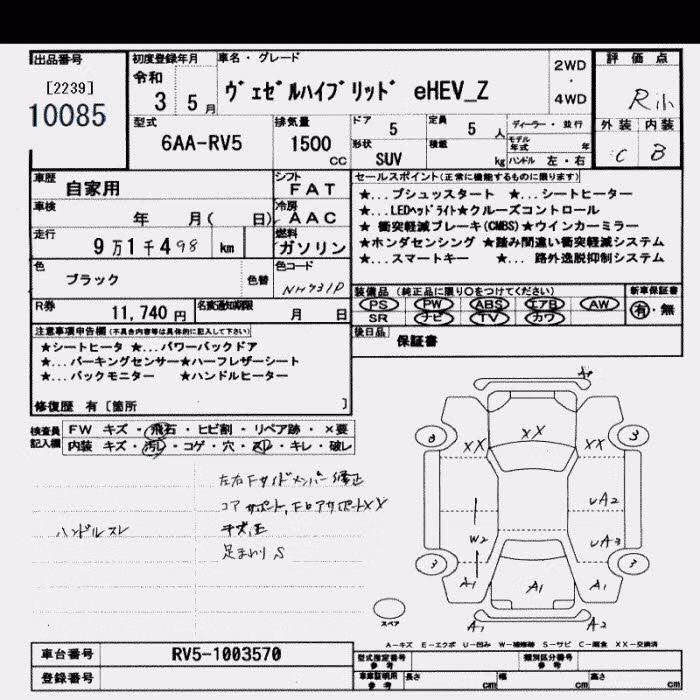 出品番号
[2239]
10085
初度登録年月
令和
3 5月
車名・グレード
ヴェゼルハイブリッド eHEV_Z
2WD
・
4WD
評価点
R小
外装 内装
C B
型式
6AA-RV5
排気量
1500
CC
ドア 5
定員 5 人
形状
SUV
積載
kg
ディーラー・並行
モデル年式 年
ハンドル 左・右
車歴
自家用
車検
年 月( 日)
走行
9万1千498 km
色
ブラック
色替
シフト
FAT
冷房
AAC
燃料
ガソリン
色コード
NH731P
R券
11,740円
名変通知期限
月 日
セールスポイント(正常に機能するものに限ります)
★...プシュッスタート ★...シートヒーター
★...LEDヘッドライト★クルーズコントロール
★衝突軽減ブレーキ(CMBS)★ウインカーミラー
★ホンダセンシング ★踏み間違い衝突軽減システム
★...スマートキー ★... 路外逸脱抑制システム
装備品(純正品に限り○をつけてください)
PS PW ABS エアB AW
SR ナビ TV カワ
新車保証書
有・無
後日品
保証書
注意事項申告欄(不具合内容等は具体的に記入して下さい)
★シートヒータ ★...パワーバックドア
★...パーキングセンサー★ハーフレザーシート
★...バックモニター ★ハンドルヒーター
修復歴 有[箇所 ]
検査員
記入欄
FW キズ・飛石・ヒビ割・リペア跡・×要
内装 キズ・汚レ・コゲ・穴・スレ・キレ・破レ
左右Fサイドメンバー修正
コアサポート,FロアサポートXX
ハンドルスレ
足まわりS
XX XX XX
3
3 3
UA2
W2
UA3
A1 A1 A1
A1 A2
スペア
A-キズ E-エクボ U-凹み W-補修跡 S-サビ C-腐食 XX-交換済
車台番号
RV5-1003570
登録番号
型式指定番号
参考
類別区分番号
参考
車庫証明用
参考
長さ cm
幅 cm
高さ cm